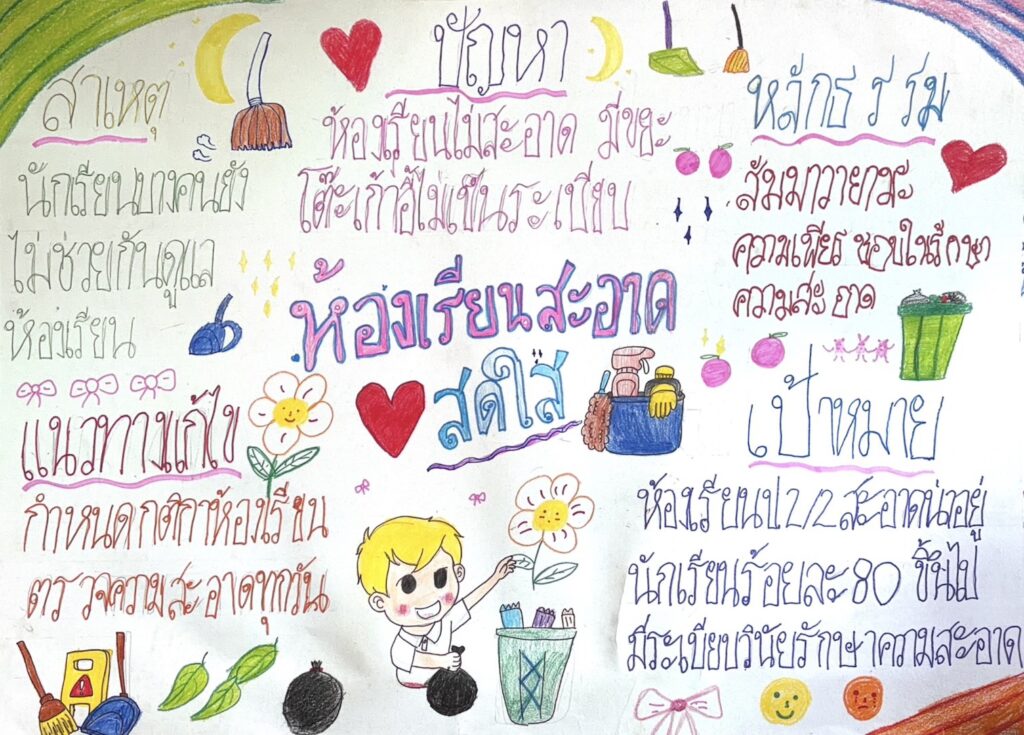 ปัญหา
ห้องเรียนไม่สะอาด มีขยะ
โต๊ะเก้าอี้ไม่เป็นระเบียบ
สาเหตุ
นักเรียนบางคนยัง
ไม่ช่วยกันดูแล
ห้องเรียน
หลักธรรม
สัมมาวายามะ
ความเพียร ชอบในรักษา
ความสะอาด
ห้องเรียนสะอาด
สดใส
แนวทางแก้ไข
กำหนดกติกาห้องเรียน
ตรวจความสะอาดทุกวัน
เป้าหมาย
ห้องเรียนป2/2สะอาดน่าอยู่
นักเรียนร้อยละ80 ขึ้นไป
มีระเบียบวินัยรักษาความสะอาด